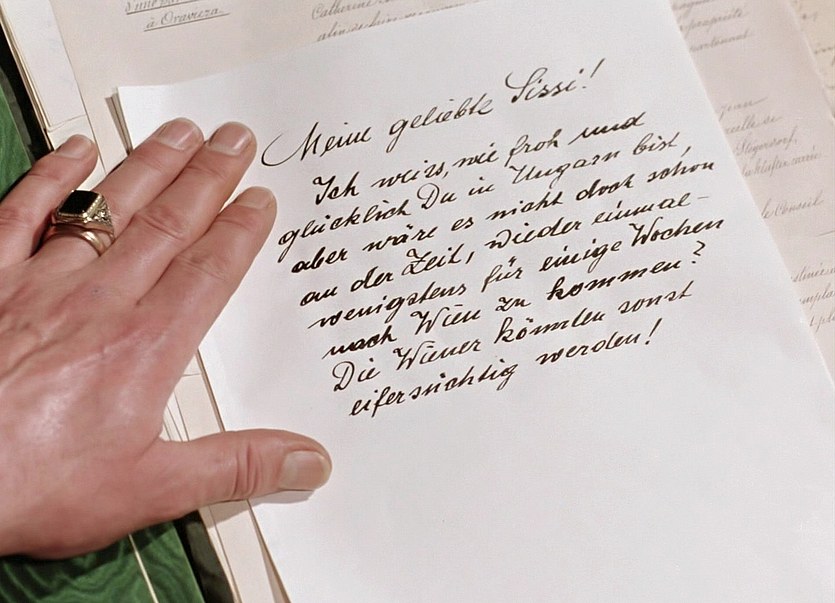 à Oravicza.
Catherine
Meine geliebte Sissi!
Ich weiss, wie froh und
glücklich Du in Ungarn bist,
aber wäre es nicht doch schon
an der Zeit, wieder einmal-
wenigstens für einige Wochen
nach Wien zu kommen?
Die Wiener könnten sonst
eifersüchtig werden!
propriété
le Conseil